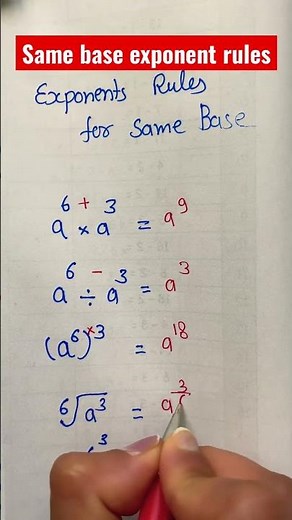 Same base exponent rules
Exponents Rules
for Same Base
a^6 + × a^3 = a^9
a^6 - ÷ a^3 = a^3
(a^6)^×3 = a^18
6√a^3 = a^3/
3